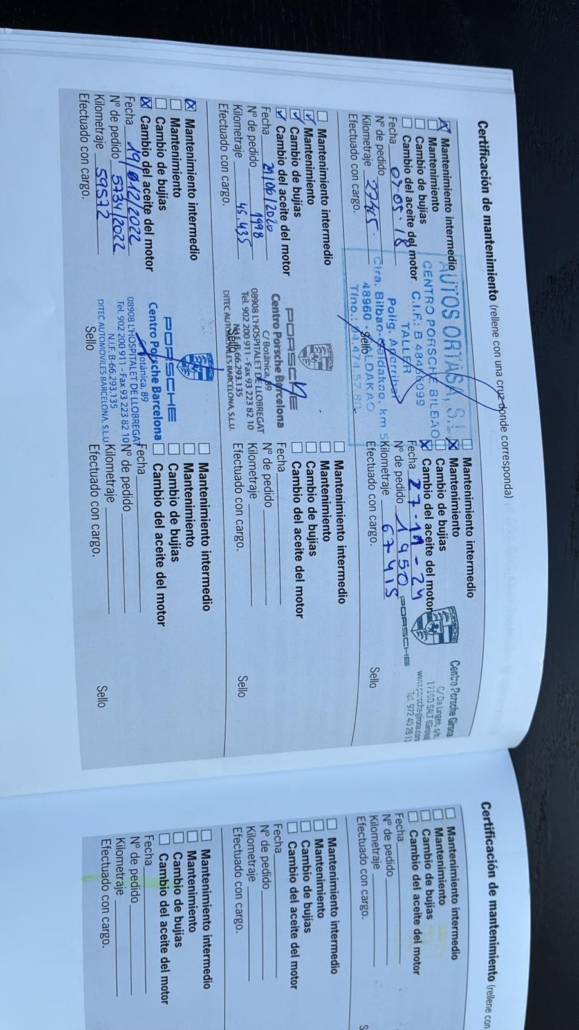 Certificación de mantenimiento (rellene con una cruz donde corresponda)
Mantenimiento intermedio
Mantenimiento
Cambio de bujías
Cambio del aceite del motor
Fecha 07-05-18
Nº de pedido
Kilometraje
Efectuado con cargo.
Sello
AUTOS ORTASA, S.L.
CENTRO PORSCHE BILBAO
TALLER
48960
Mantenimiento
Cambio de bujías
Cambio del aceite del motor
Fecha 21/06/2020
Nº de pedido 1998
Kilometraje 45.435
Efectuado con cargo.
PORSCHE
Centro Porsche Barcelona
C/ Botánica, 89
08908 L'HOSPITALET DE LLOBREGAT
Tel. 902 200 911 - Fax 93 223 82 10
N.I.F. B-66.293.135
DITEC AUTOMOVILES BARCELONA, S.L.U.
Mantenimiento intermedio
Mantenimiento
Cambio de bujías
Cambio del aceite del motor
Fecha
Nº de pedido 5734/2022
Kilometraje 59572
Efectuado con cargo.
Sello
PORSCHE
Centro Porsche Barcelona
Botánica, 89
08908 L'HOSPITALET DE LLOBREGAT
Tel. 902 200 911 - Fax 93 223 82 10
N.I.F. B-66.293.135
DITEC AUTOMOVILES BARCELONA, S.L.U.
Mantenimiento intermedio
Mantenimiento
Cambio de bujías
Cambio del aceite del motor
Fecha 27-11-24
Nº de pedido 1950
Kilometraje 67415
Efectuado con cargo.
Sello
PORSCHE
Centro Porsche Girona
Mantenimiento intermedio
Mantenimiento
Cambio de bujías
Cambio del aceite del motor
Fecha
Nº de pedido
Kilometraje
Efectuado con cargo.
Sello
Mantenimiento intermedio
Mantenimiento
Cambio de bujías
Cambio del aceite del motor
Fecha
Nº de pedido
Kilometraje
Efectuado con cargo.
Sello
Certificación de mantenimiento (rellene con
Mantenimiento intermedio
Mantenimiento
Cambio de bujías
Cambio del aceite del motor
Fecha
Nº de pedido
Kilometraje
Efectuado con cargo.
Mantenimiento intermedio
Mantenimiento
Cambio de bujías
Cambio del aceite del motor
Fecha
Nº de pedido
Kilometraje
Efectuado con cargo.
Mantenimiento intermedio
Mantenimiento
Cambio de bujías
Cambio del aceite del motor
Fecha
Nº de pedido
Kilometraje
Efectuado con cargo.